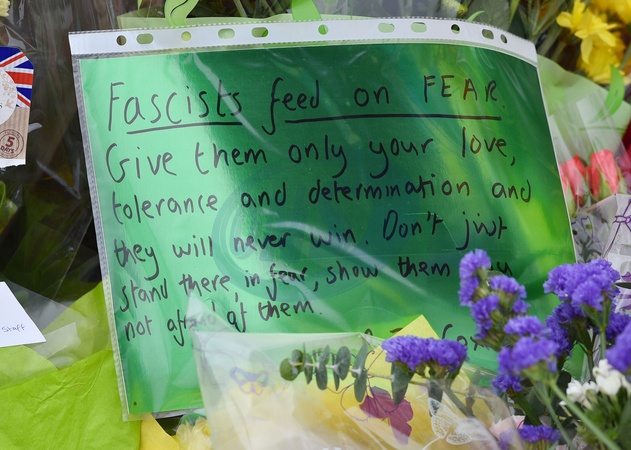 Fascists feed on FEAR.
Give them only your love,
tolerance and determination and
they will never win. Don't just
stand there, in fear, show them
not of them.
5 DAYS
Staff